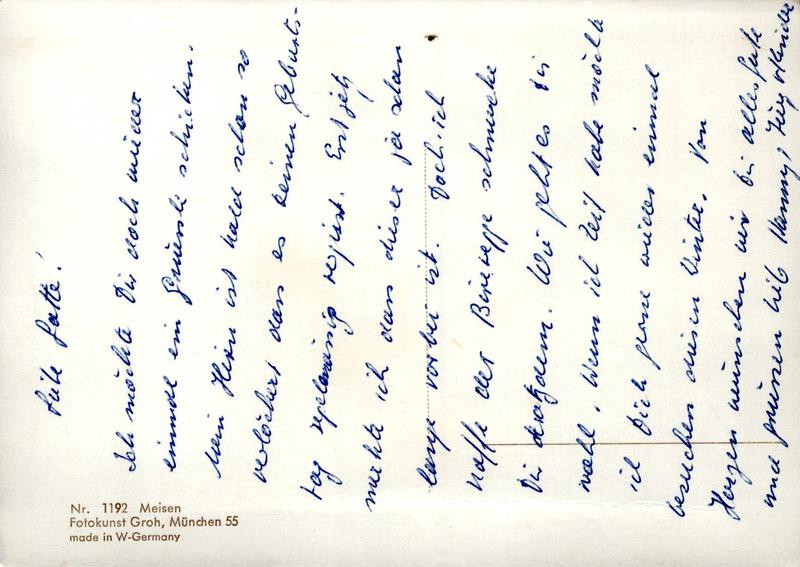 Liebe Gotte!
Ich möchte Dir doch wieder
einmal ein Gruessli schicken.
Mein Hirn ist hald schon so
verlöchert dass es keinen Geburts-
tag regelmässig regist. Erst jetz
merkte ich dass dieser ja schon
lange vorbei ist. Doch ich
hoffe der Birewegge schmecke
Dir trotzdem. Wie geht es Dir
wohl. Wenn ich Zeit habe möchte
ich Dich gerne wieder einmal
besuchen diesen Winter. Von
Herzen wünschen wir Dir alles Gute
und grüssen lieb Hanny,
Nr. 1192 Meisen
Fotokunst Groh, München 55
made in W-Germany